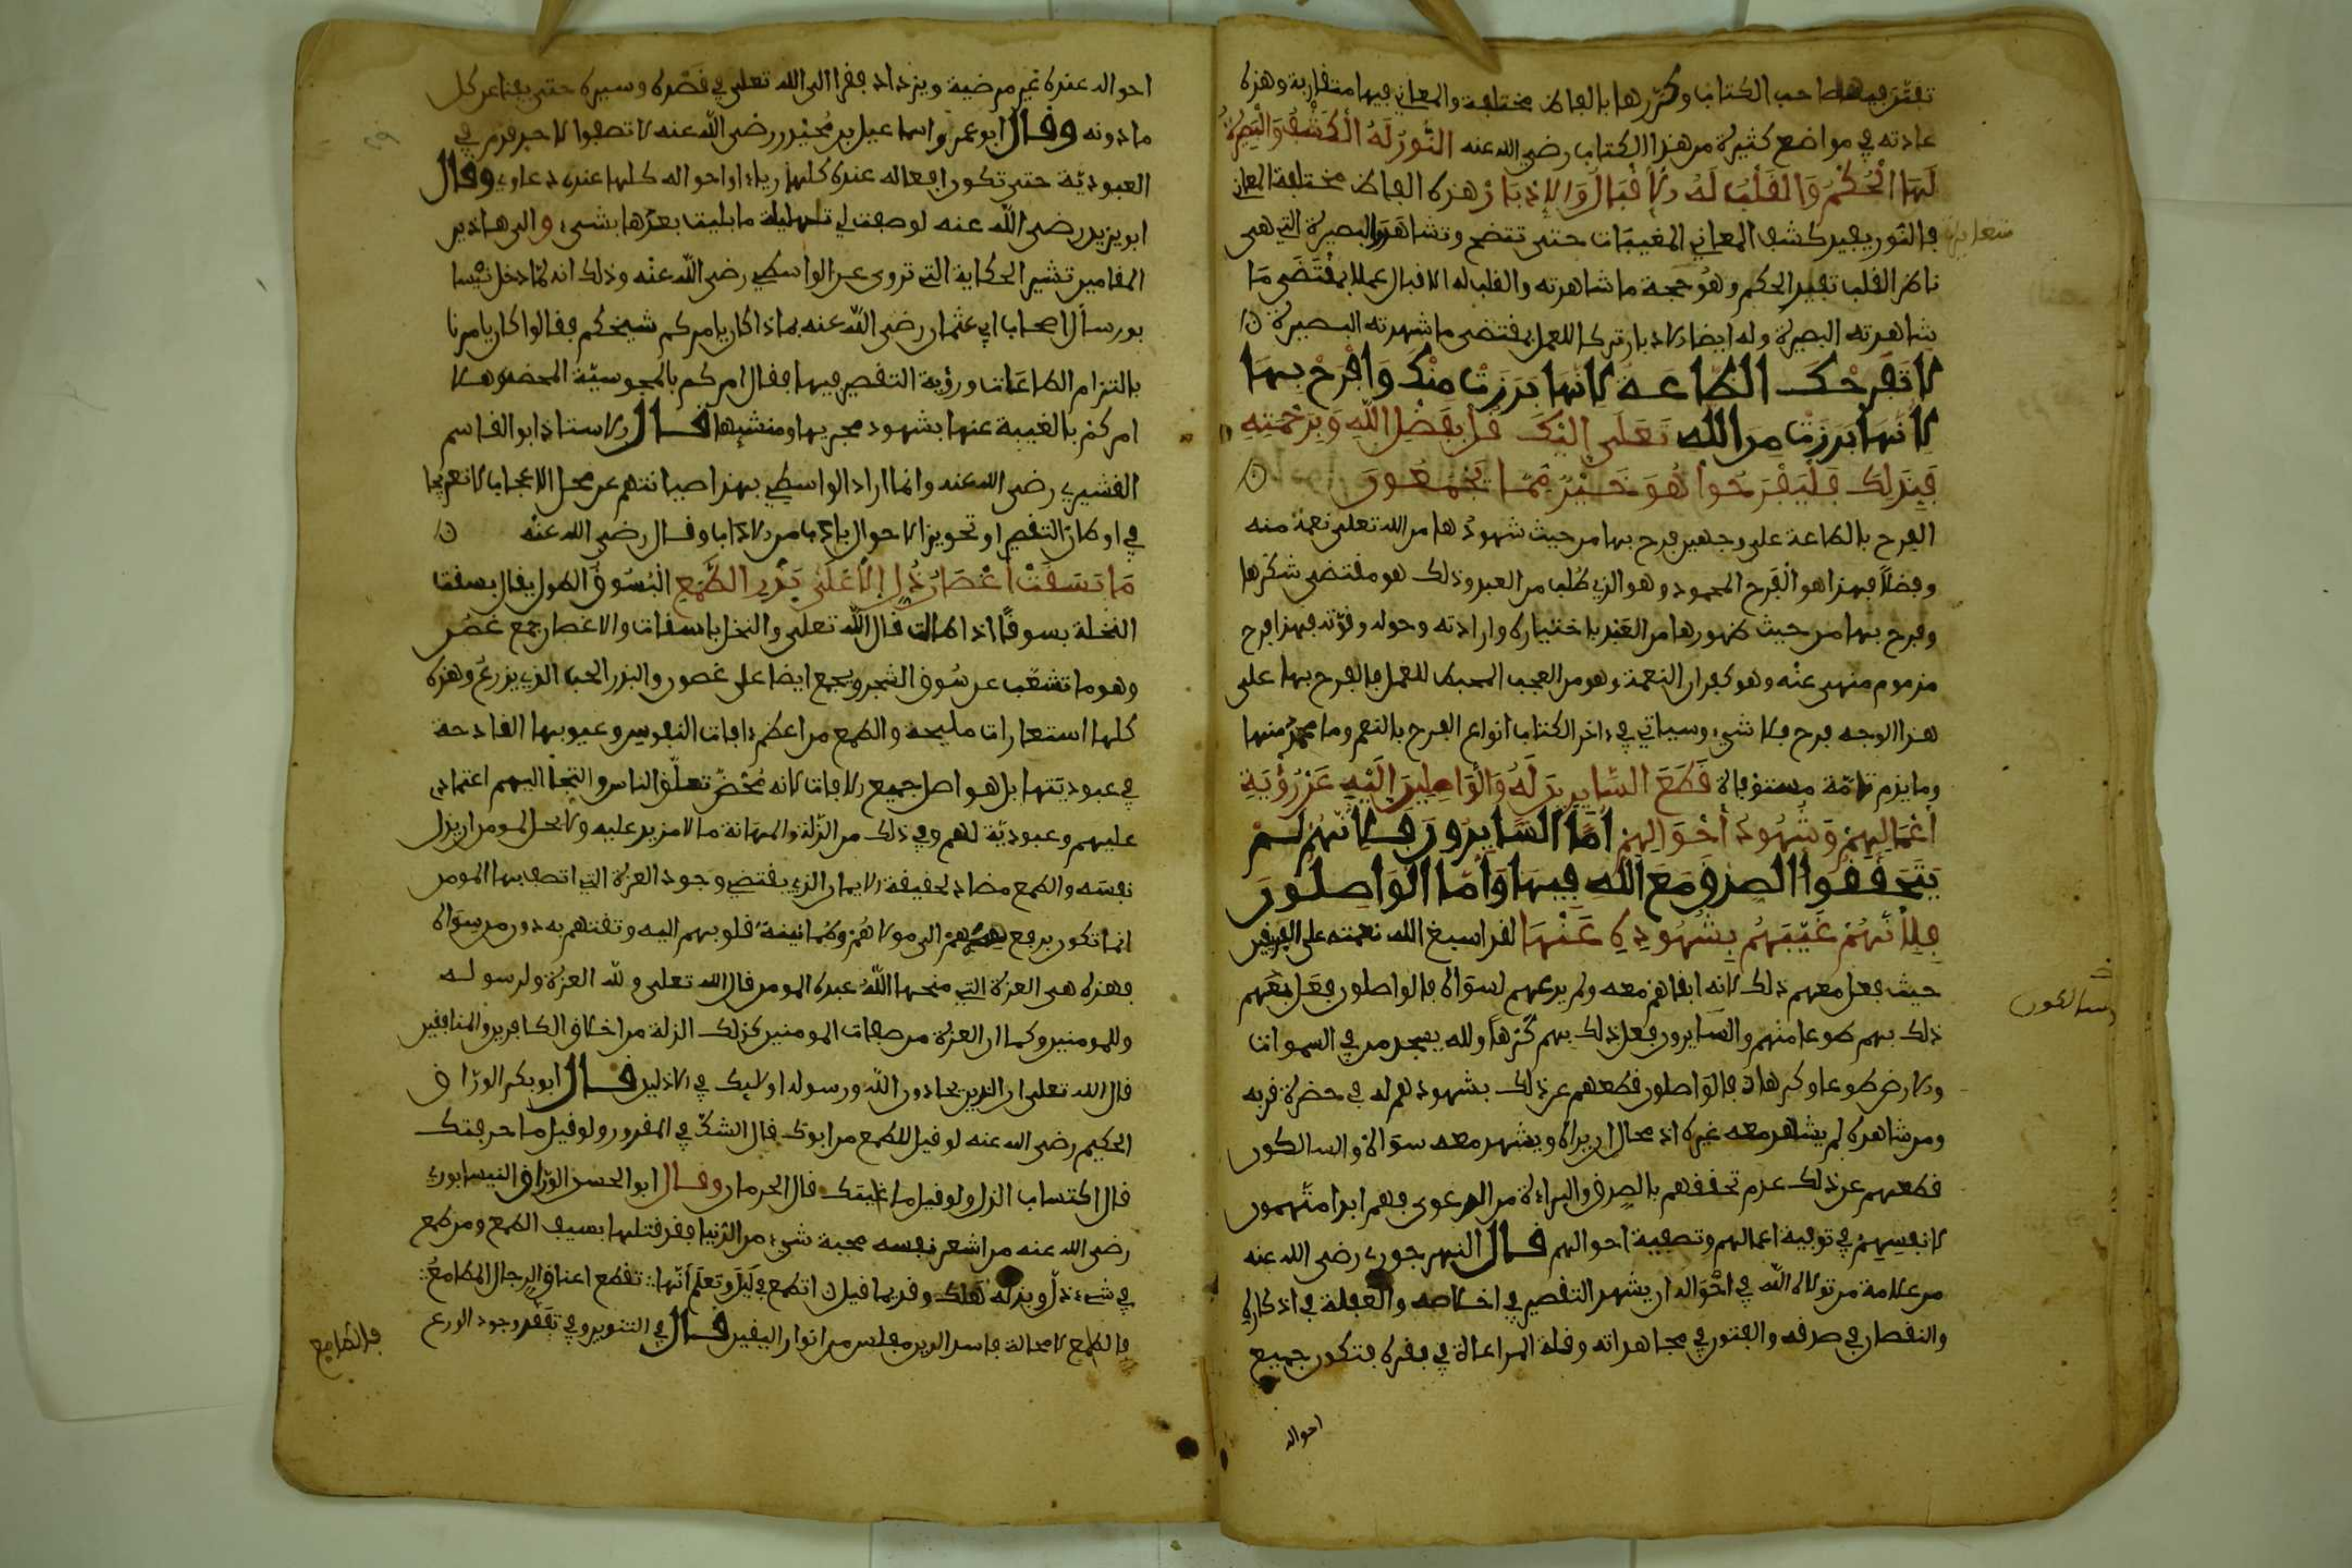 تفنّن فيها صاحب الكتاب وكرّرها بالفاظ مختلفة والمعاني فيها متقاربة وهذه
عادته في مواضع كثيرة من هذا الكتاب رضي الله عنه النُّورُ لَهُ الْكَشْفُ وَالْبَصِيرَةُ
لَهَا الْحُكْمُ وَالْقَلْبُ لَهُ الإِقْبَالُ وَالإِدْبَارُ هذه الفاظ مختلفة المعاني
فالنور يفيد كشف المعاني المغيبات حتى تتضح وتشاهد والبصيرة التي هي
ناظر القلب تفيد الحكم وهو صحة ما شاهدته والقلب له الاقبال عملا بمقتضى ما
شاهدته البصيرة وله ايضا الادبار تركا للعمل بمقتضى ما شهدته البصيرة
لا تُفرحْك الطاعة لانها بَرَزَتْ منك وَافْرَحْ بها
لأنها بَرَزَتْ من الله تَعَلَى إليْكَ قل بِفَضْلِ اللهِ وَبِرَحْمَتِهِ
فَبِذَلِكَ فَلْيَفْرَحُوا هُوَ خَيْرٌ مِّمَّا يَجْمَعُونَ
الفرح بالطاعة على وجهين فرح بها من حيث شهودها من الله تعلى نعمة منه
وفضلاً فهذا هو الفرح المحمود وهو الذي طُلب من العبد وذلك هو مقتضى شكرها
وفرح بها من حيث ظهورها من العبد باختياره وارادته وحوله وقوّته فهذا فرح
مذموم منهى عنه وهو كفران النعمة وهو من العجب المحبط للعمل فالفرح بها على
هذا الوجه فرح بلا شيء وسياتي في ءاخر الكتاب انواع الفرح بالنعم وما يحمد منها
وما يذم تامّة مستوفاة قَطَعَ السَّايِرِينَ لَهُ وَالْوَاصِلِينَ إِلَيْهِ عَنْ رُؤْيَةِ
أعْمَالِهِمْ وَشُهُودِ أَحْوَالِهِمْ أمّا السّايرون فلأنهم لم
يَتَحَقَّقُوا الصدق مَعَ اللهِ فِيهَا وَأَمَّا الْوَاصِلُونَ
فَلِأَنَّهُمْ غَيَّبَهُمْ بِشُهُودِهِ عَنْهَا لقد اسبغ الله نعمته على الفريقين
حيث فعل معهم ذلك لانه ابقاهم معه ولم يدعهم لسواه فالواصلون فعل معهم
ذلك بهم طوعا منهم والسايرون فعل ذلك بهم كُرْهًا ولله يسجد من في السموات
والارض طوعا وكرها فالواصلون قطعهم عن ذلك بشهودهم له في حضرة قربه
ومن شاهده لم يشاهد معه غيره اذ محال ان يراه ويشهد معه سواه والسالكون
قطعهم عن ذلك عدم تحققهم بالصدق والبراءة من الدعوى فهم ابدا متهمون
لانفسهم في توفية اعمالهم وتصفية احوالهم قال النهرجوري رضي الله عنه
من علامة من تولاه الله في احواله ان يشهد التقصير في اخلاصه والغفلة في اذكاره
والنقصان في صدقه والفتور في مجاهداته وقلة المراعاة في فقره فتكون جميع
احواله
وسالكون
احواله عنده غير مرضية ويزداد فقرا الى الله تعلى في قصده وسيره حتى يفنا عن كل
ما دونه وقال ابو عمرو اسماعيل بن نُجَيْد رضي الله عنه لا تصفوا لاحد قدم في
العبوديّة حتى تكون افعاله عنده كلها رياء واحواله كلها عنده دعاوي وقال
ابو يزيد رضي الله عنه لو صفت لي تهليلة ما باليت بعدها بشيء والى هاذين
المقامين تشير الحكاية التي تروى عن الواسطي رضي الله عنه وذلك انه لمّا دخل نيْسا
بور سأل اصحاب ابي عثمان رضي الله عنه بماذا كان يامركم شيخكم فقالوا كان يامرنا
بالتزام الطاعات ورؤية التقصير فيها فقال امركم بالمجوسيّة المحضة هلا
امركم بالغيبة عنها بشهود مجريها ومنشيها قال الاستاذ ابو القاسم
القشيري رضي الله عنه وانما اراد الواسطي بهذا صيانتهم عن محل الاعجاب لا تعريجا
في اوطان التقصير او تجويزا لاخلال بادب من الاداب وقال رضي الله عنه
مَا بَسَقَتْ أغْصَانُ ذُلٍّ إِلَّا عَلَى بَذْرِ الطَّمَعِ الْبُسُوقُ الطول يقال بسقت
النخلة بسوقًا اذا طالت قال الله تعلى والنخل باسقات والاغصان جمع غصن
وهو ما تشعّب عن سُوق الشجر ويجمع ايضا على غصون والبذر الحب الذي يزرع وهذه
كلها استعارات مليحة والطمع من اعظم ءافات النفوس وعيوبها القادحة
في عبوديّتها بل هو اصل جميع الافات لانه مَحْضُ تعلّق الناس والتجا اليهم اعتماد
عليهم وعبوديّة لهم وفي ذلك من الذّلة والمهانة ما لا مزيد عليه ولا يحل لمومن ان يذل
نفسه والطمع مضاد لحقيقة الايمان الذي يقتضي وجود العزة التي اتصف بها المومن
انما تكون برفع هممهم الى مولاهم وطمانينة قلوبهم اليه وثقتهم به دون من سواه
فهذه هي العزة التي منحها الله عبده المومن قال الله تعلى ولله العزة ولرسوله
وللمومنين وكما ان العزة من صفات المومنين كذلك الذلة من اخلاق الكافرين والمنافقين
قال الله تعلى ان الذين يحادون الله ورسوله اولايك في الاذلين قال ابو بكر الورّاق
الحكيم رضي الله عنه لو قيل للطمع من ابوك قال الشكّ في المقدور ولو قيل ما حرفتك
قال اكتساب الذل ولو قيل ما غايتك قال الحرمان وقال ابو الحسن الورّاق النيسابوري
رضي الله عنه من اشعر نفسه محبة شيء من الدّنيا فقد قتلها بسيف الطمع ومن طمع
في شيء ذلّ وبذله هلك وقديما قيل اتطمع في لَيْلَى وتعلم أنّها تقطع اعناق الرجال المطامعُ
فالطامع لا محالة فاسد الدين مفلس من انوار اليقين قال في التنوير وفي تفقّد وجود الورع